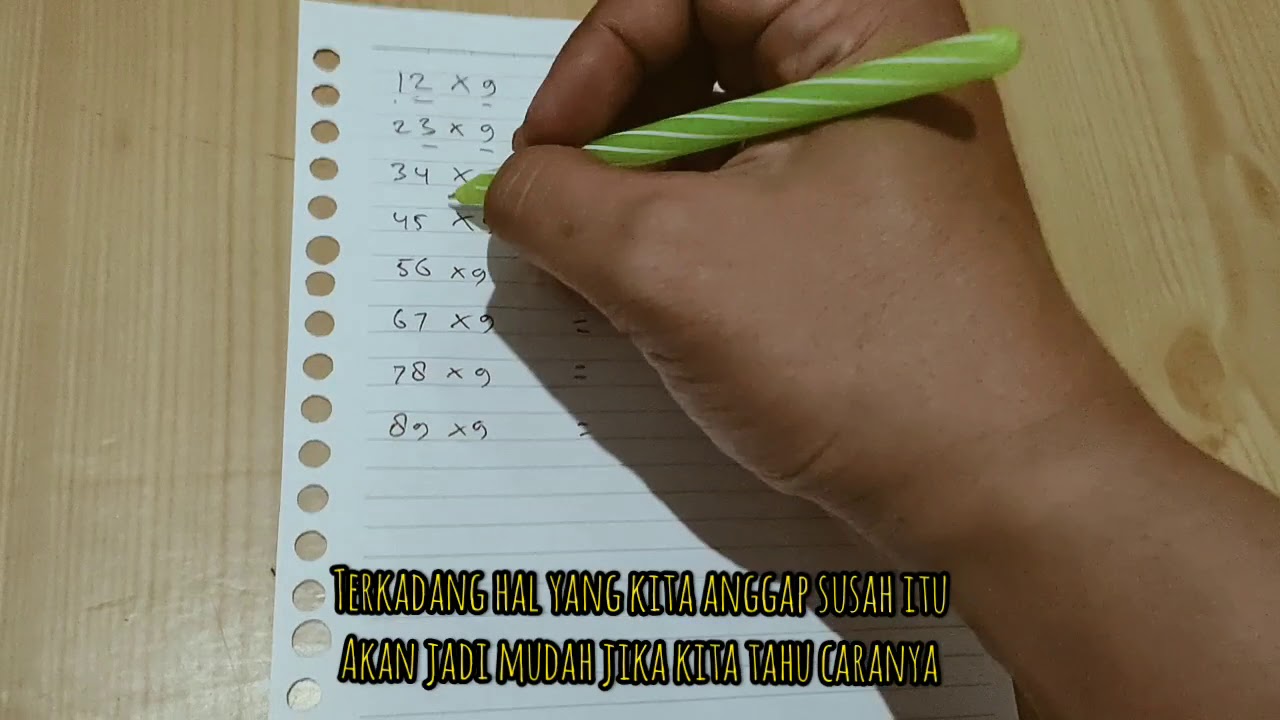 12 x 9
23 x 9
34 x
45 x
56 x 9
67 x 9 =
78 x 9 =
89 x 9 =
Terkadang hal yang kita anggap susah itu
Akan jadi mudah jika kita tahu caranya